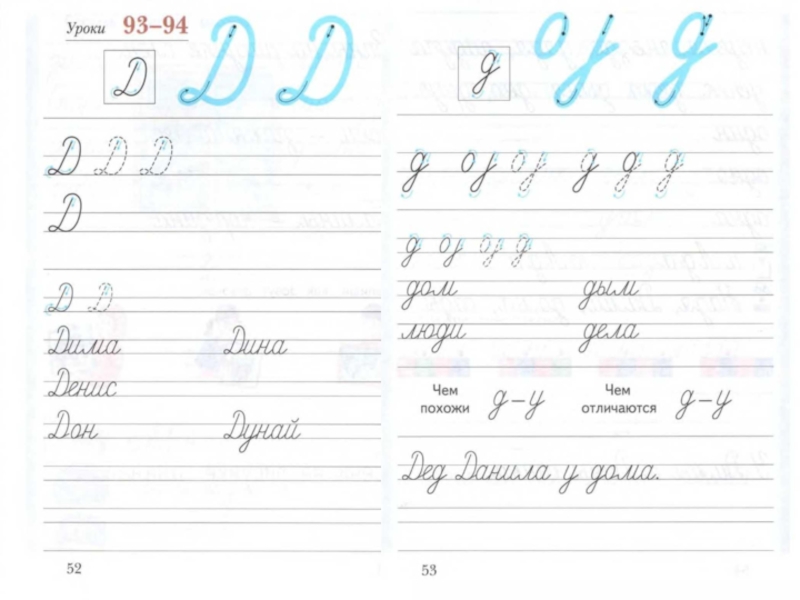 Уроки 93–94
Д Д Д
Д Д Д
Д
Д Д
Дима Дина
Денис
Дон Дунай
52
д д д
д д д д д д
д д д д
дом дым
люди дела
Чем похожи д–у Чем отличаются д–у
Дед Данила у дома.
53